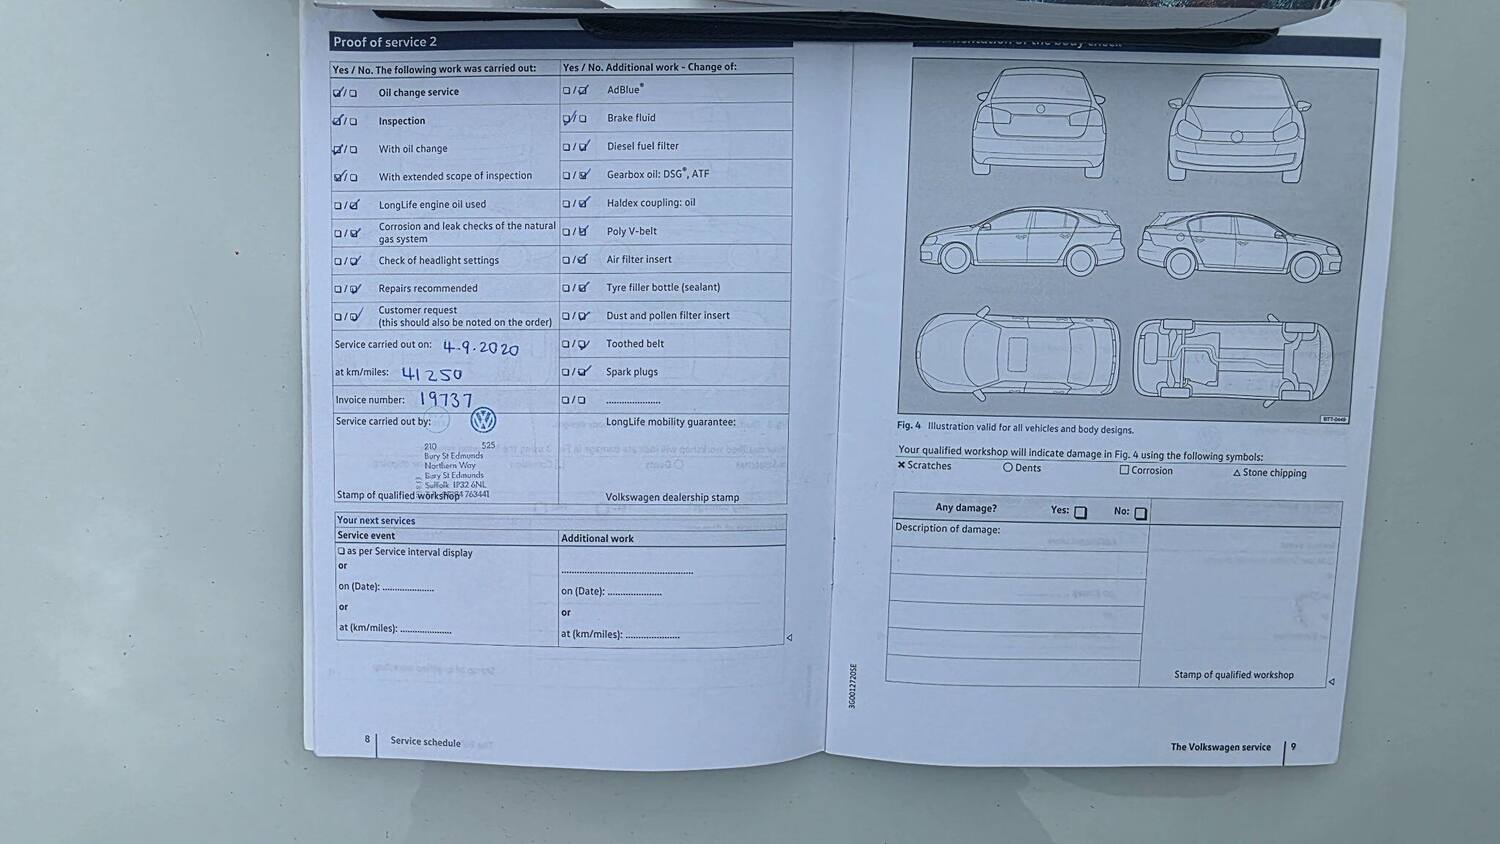 Proof of service 2
Yes / No. The following work was carried out:
Oil change service
Inspection
With oil change
With extended scope of inspection
LongLife engine oil used
Corrosion and leak checks of the natural
gas system
Check of headlight settings
Repairs recommended
Customer request
(this should also be noted on the order)
Service carried out on: 4.9.2020
at km/miles: 41250
Invoice number: 19737
Service carried out by:
210 525
Bury St Edmunds
Northern Way
Bury St Edmunds
Suffolk IP32 6NL
763441
Stamp of qualified workshop
Yes / No. Additional work - Change of:
AdBlue®
Brake fluid
Diesel fuel filter
Gearbox oil: DSG®, ATF
Haldex coupling: oil
Poly V-belt
Air filter insert
Tyre filler bottle (sealant)
Dust and pollen filter insert
Toothed belt
Spark plugs
LongLife mobility guarantee:
Volkswagen dealership stamp
Your next services
Service event
as per Service interval display
or
on (Date): ....................
or
at (km/miles): ....................
Additional work
on (Date): ....................
or
at (km/miles): ....................
8 Service schedule
of the body check
BTT-0449
Fig. 4 Illustration valid for all vehicles and body designs.
Your qualified workshop will indicate damage in Fig. 4 using the following symbols:
× Scratches ○ Dents □ Corrosion △ Stone chipping
Any damage? Yes: □ No: □
Description of damage:
Stamp of qualified workshop
3G0012720SE
The Volkswagen service 9